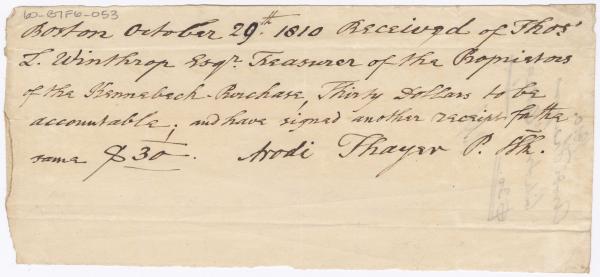 60-B7F6-053
Boston October 29.th 1810 Received of Thos.
L. Winthrop Esqr. Treasurer of the Proprietors
of the Kennebeck Purchase, Thirty Dollars to be
accountable; and have signed another receipt for the
same $30. Arodi Thayer P. Clk.